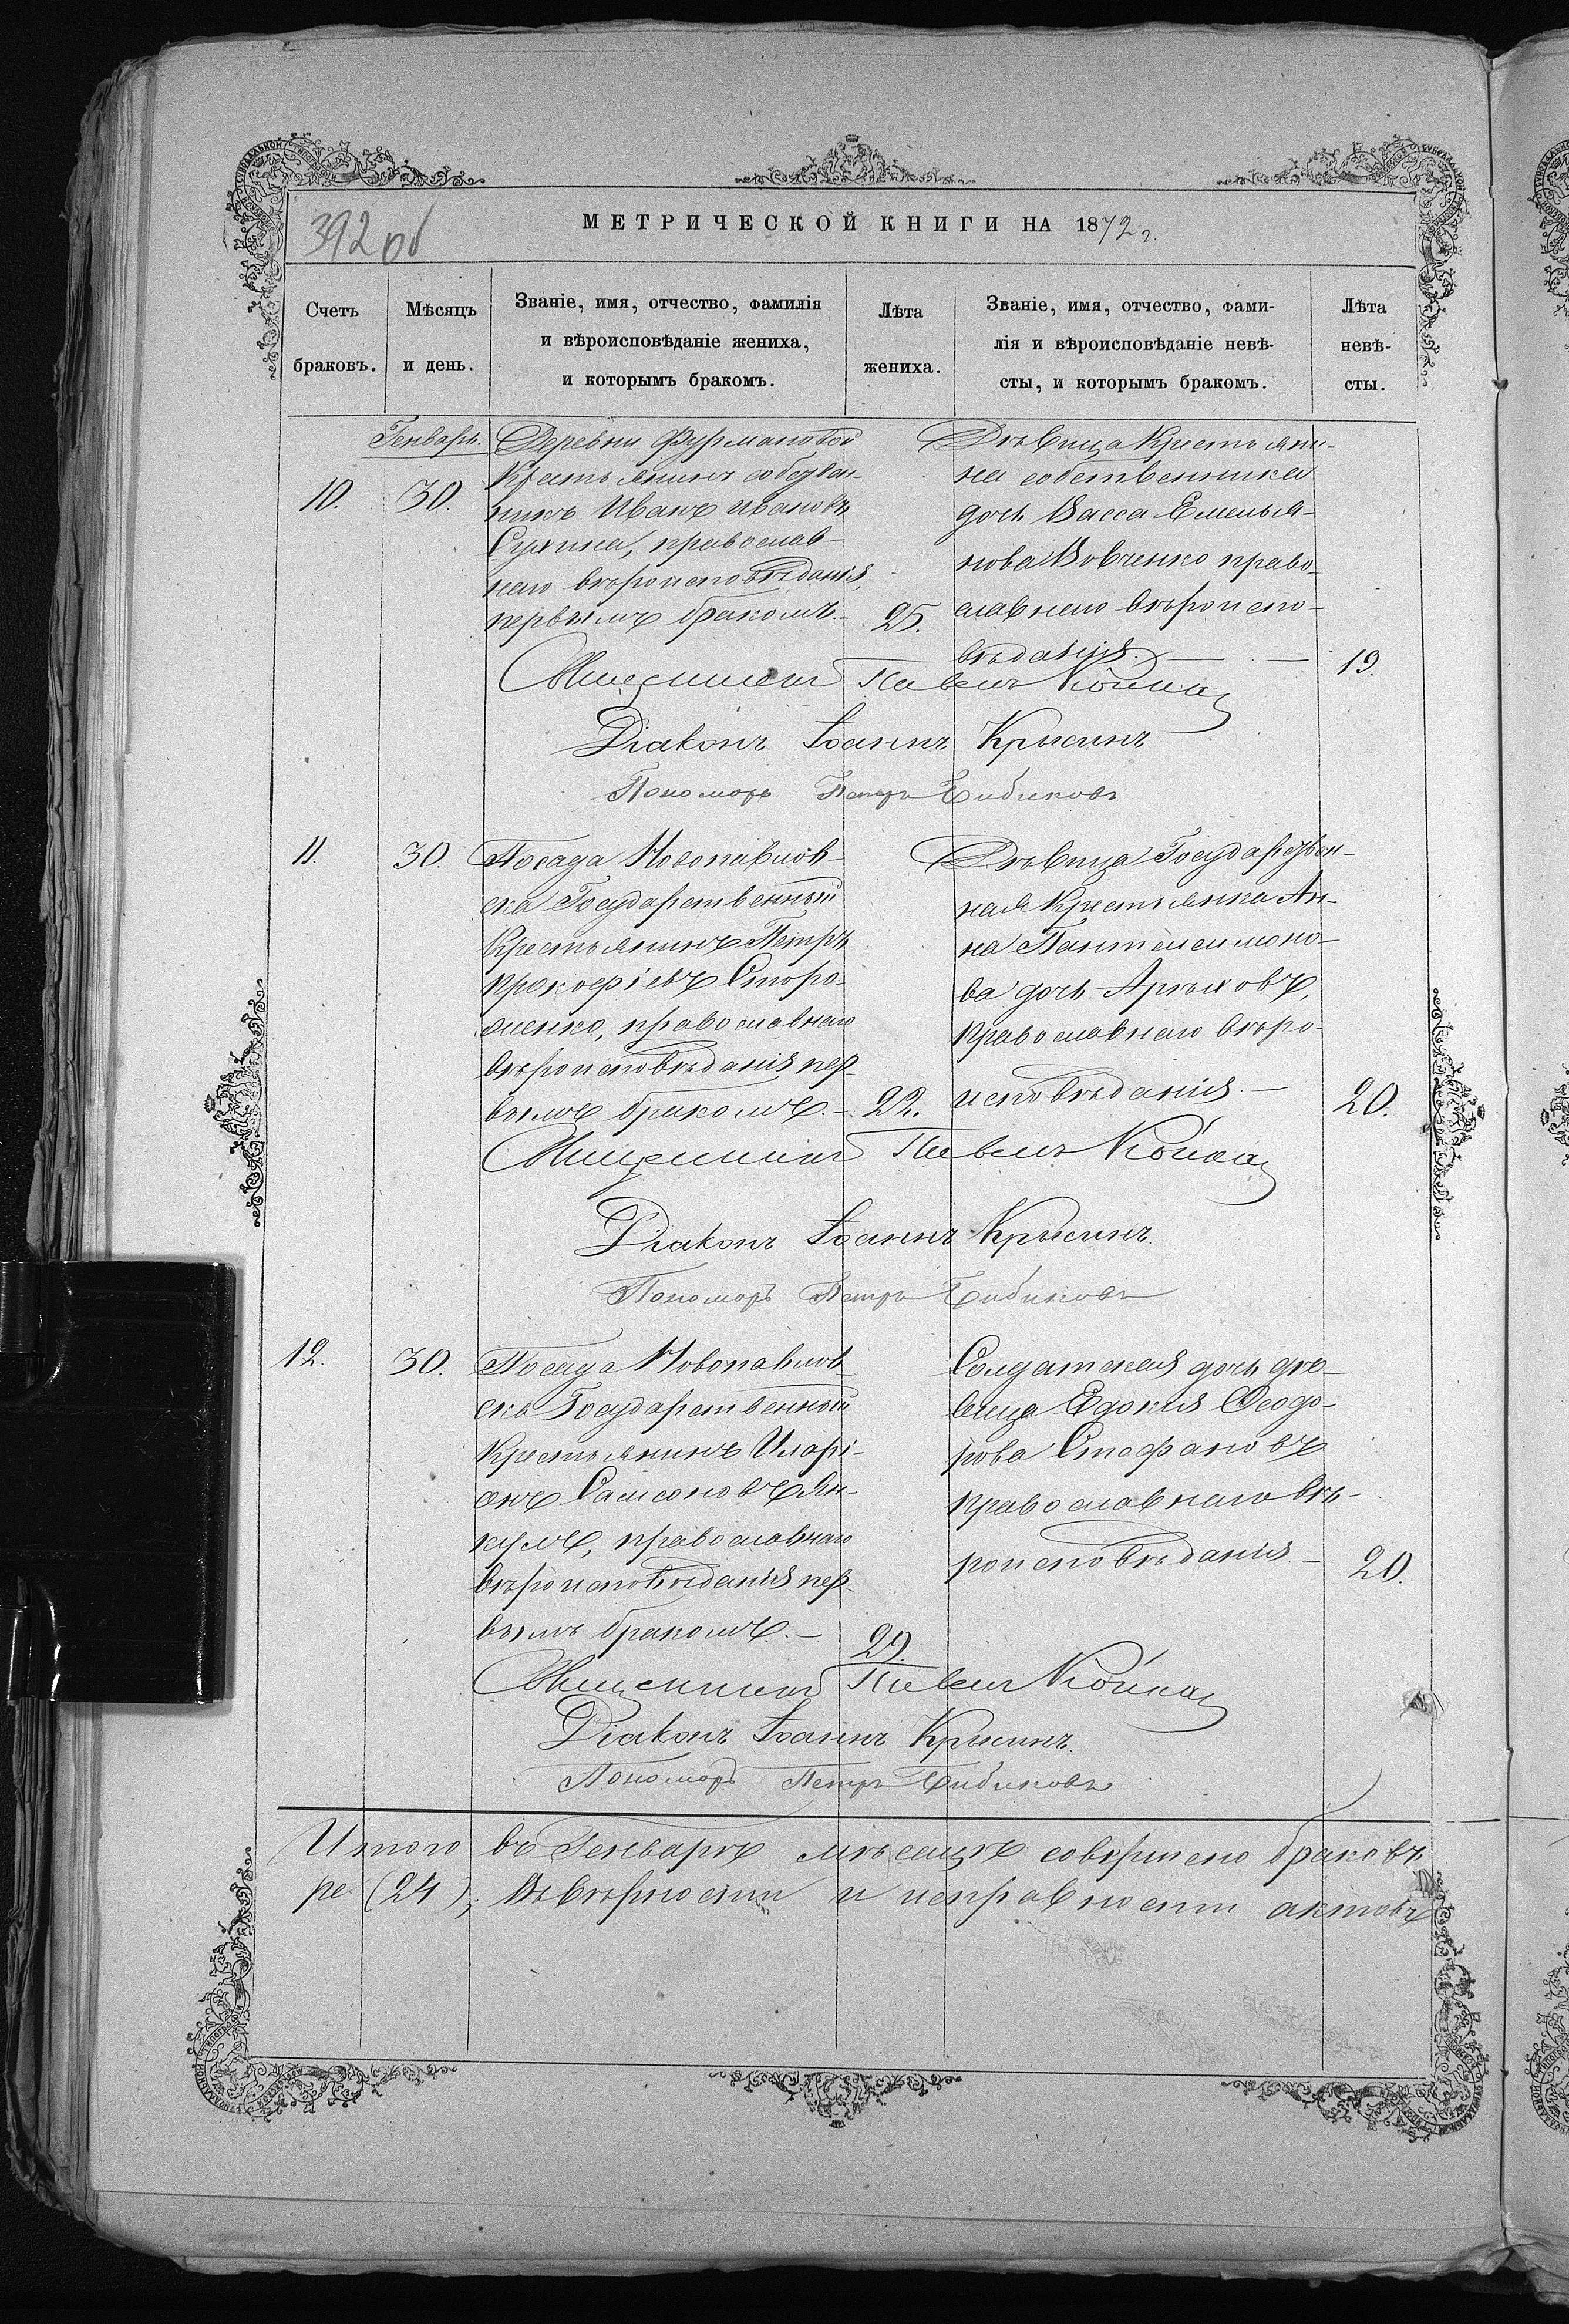 392 об
МЕТРИЧЕСКОЙ КНИГИ НА 1872 г.
Счетъ браковъ.
Мѣсяцъ и день.
Званіе, имя, отчество, фамилія
и вѣроисповѣданіе жениха,
и которымъ бракомъ.
Лѣта жениха.
Званіе, имя, отчество, фами-
лія и вѣроисповѣданіе невѣ-
сты, и которымъ бракомъ.
Лѣта невѣ-
сты.
Генварь.
10.
30.
Деревни Фурмановой
Крестьянинъ собствен-
никъ Иванъ Ивановъ
православ-
наго вѣроисповѣданія,
первымъ бракомъ.—
25.
Дѣвица Крестьяни-
на собственника
дочь Васса Емелья-
нова Вовченко право-
славнаго вѣроиспо-
вѣданія.—
19.
Священникъ Павелъ
Діаконъ Іоаннъ Крысинъ
Пономарь Петръ Чибиковъ
11.
30.
Посада Новопавлов-
ска Государственный
Крестьянинъ Петръ
Прокофіевъ Сторо-
женко, православнаго
вѣроисповѣданія пер-
вымъ бракомъ.—
22.
Дѣвица Государствен-
ная Крестьянка Ан-
на Пантелеимоно-
ва дочь
православнаго вѣро-
исповѣданія.—
20.
Священникъ Павелъ
Діаконъ Іоаннъ Крысинъ.
Пономарь Петръ Чибиковъ
12.
30.
Посада Новопавлов-
ска Государственный
Крестьянинъ Иларі-
онъ Самсоновъ Ян-
кулъ, православнаго
вѣроисповѣданія пер-
вымъ бракомъ.—
29.
Солдатская дочь дѣ-
вица Едокія Феодо-
рова Стефановъ
православнаго вѣ-
роисповѣданія.—
20.
Священникъ Павелъ
Діаконъ Іоаннъ Крысинъ.
Пономарь Петръ Чибиковъ
Итого въ Генварѣ мѣсяцѣ совершено браковъ
(24); Въ вѣрности и исправности актовъ